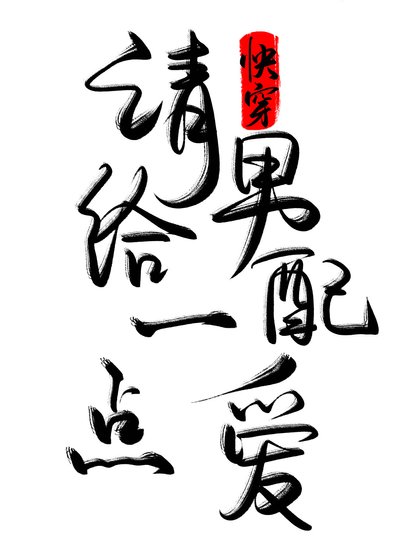 快穿
请给男配一点爱